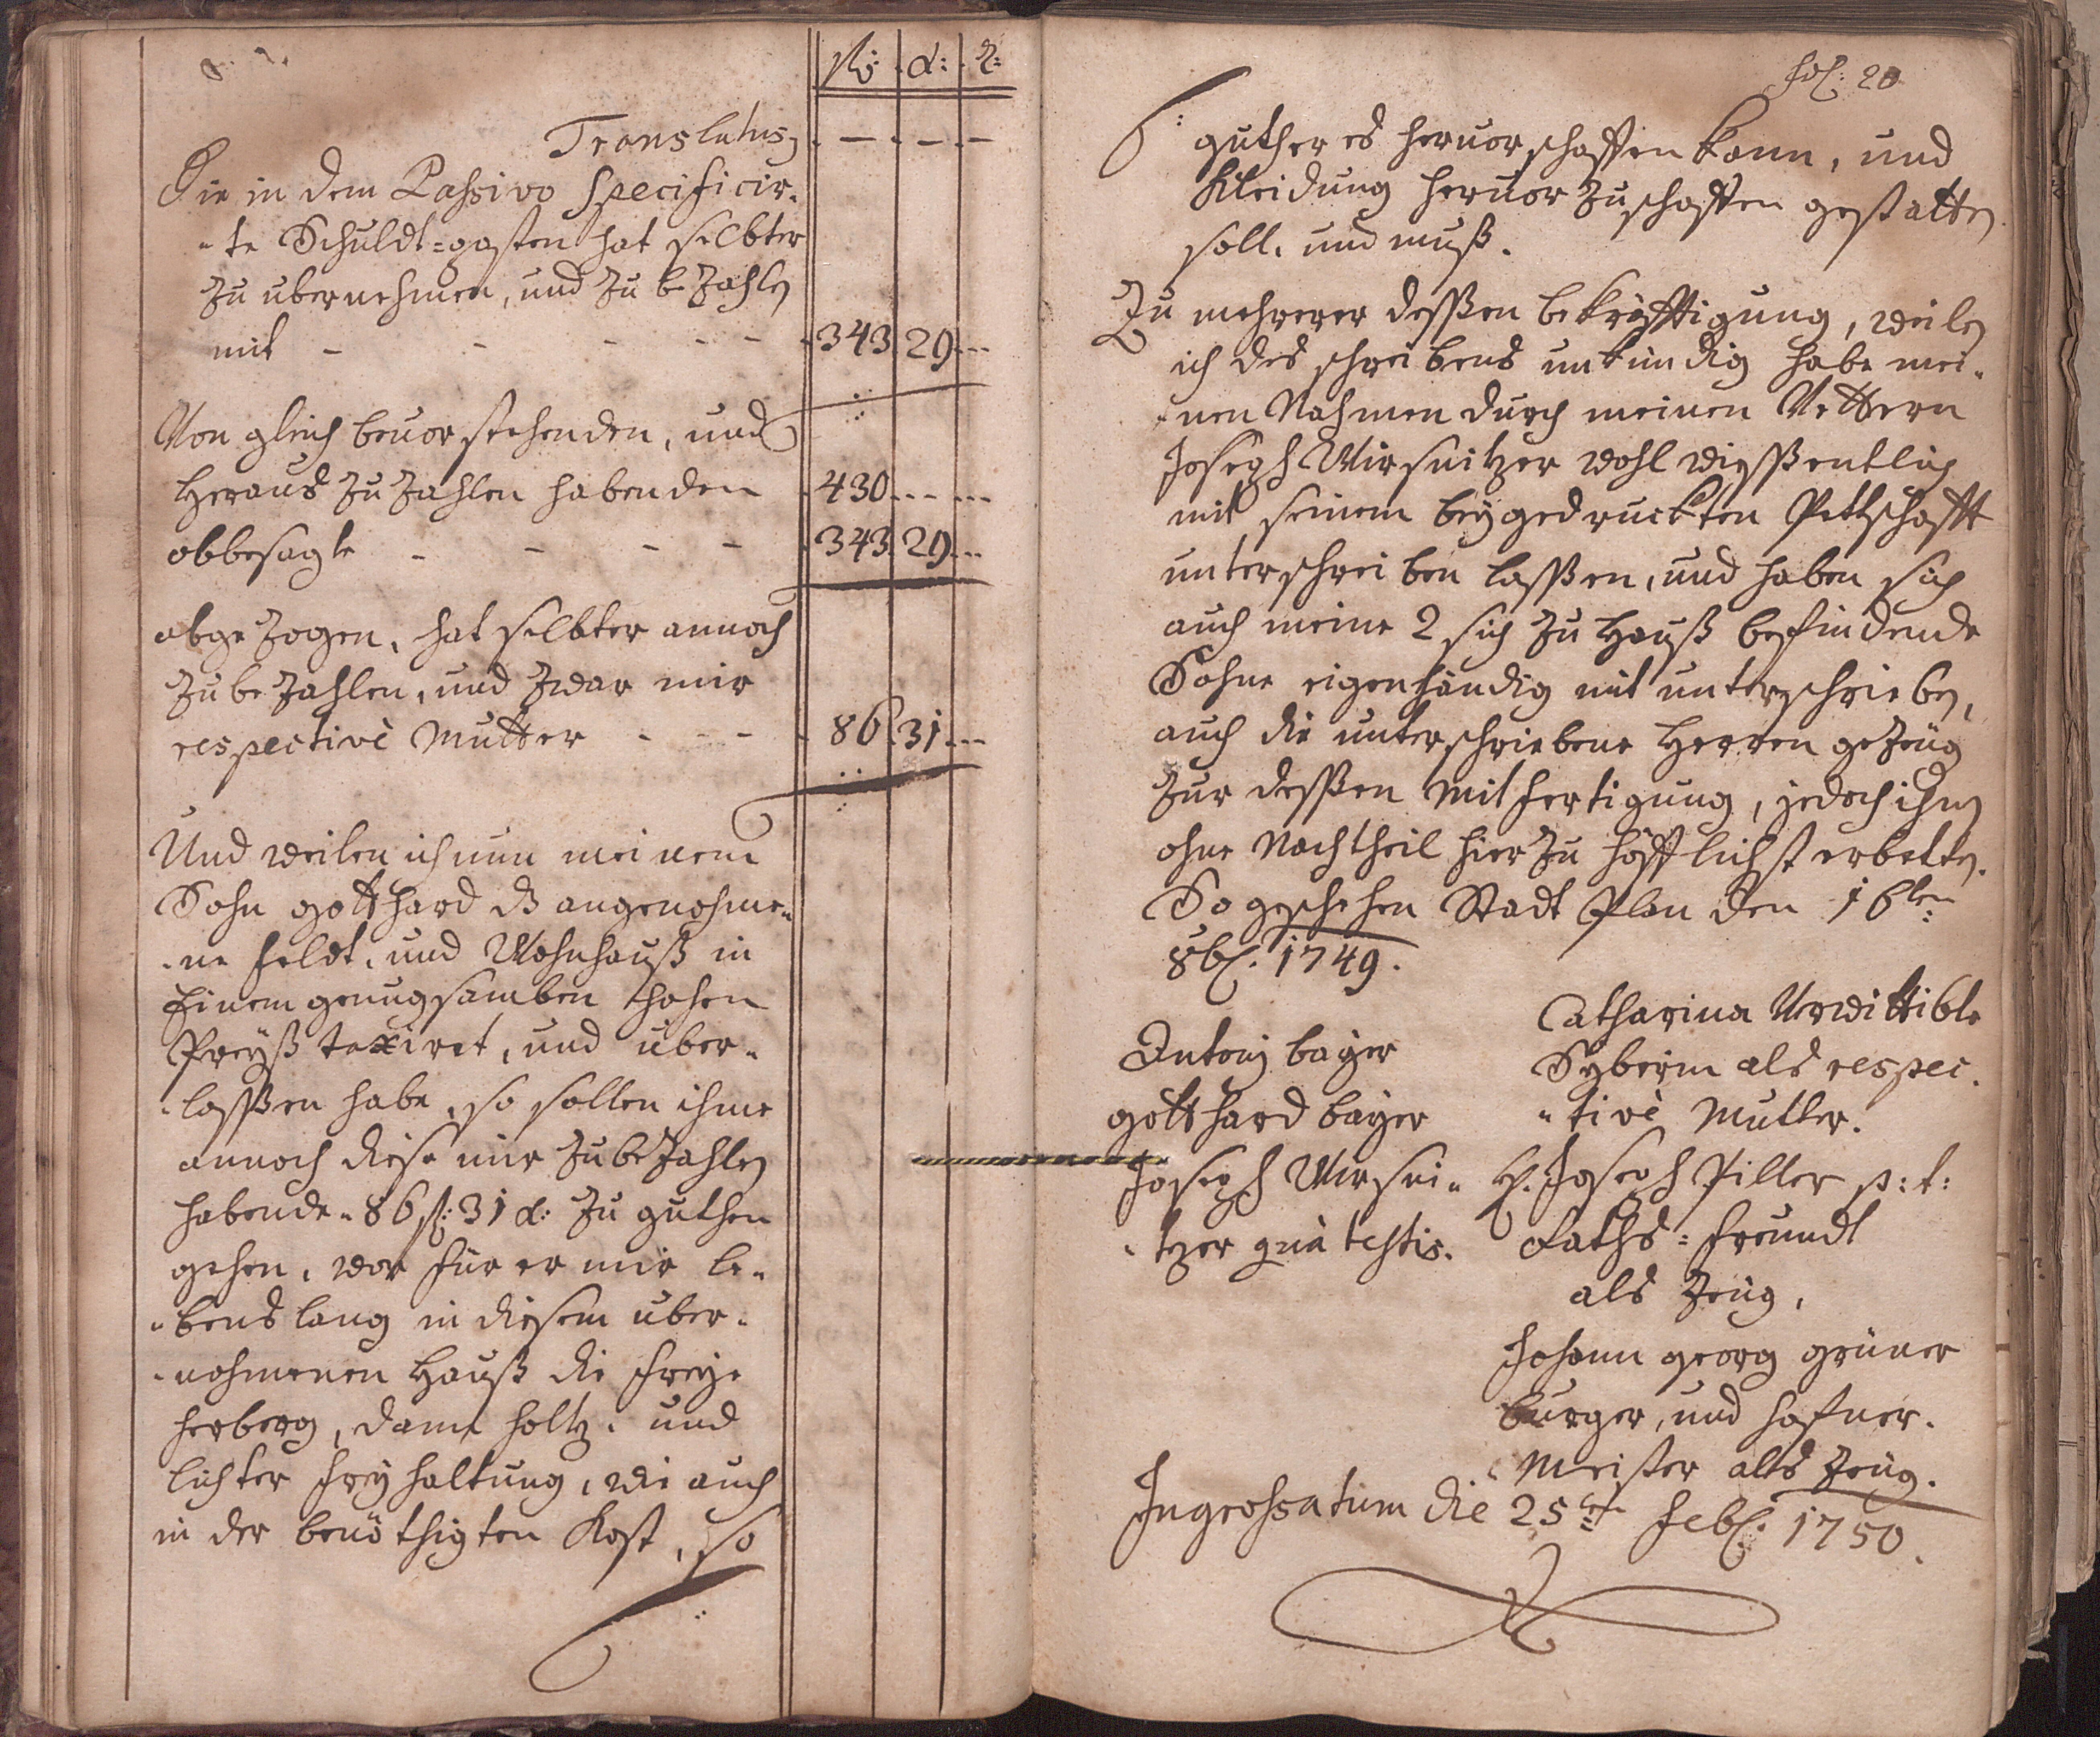 fl: x: d:
Translatus . — . — . —
Die in dem Passivo specificir-
-te Schuldt-posten hat selbter
zu ubernehmen, und zu bezahlen
mit - - - - - 343 29 ---
Von gleich bevorstehenden, und
heraus zu zahlen habenden 430 --- ---
obbesagte - - - - 343 29 ---
abgezogen, hat selbter annoch
zu bezahlen, und zwar mir
respectivè Mutter - - - 86 31 ---
Und weilen ich nun meinem
Sohn gotthard das angenohme-
-ne feldt, und Wohnhauß in
Einem genugsamben hohen
Preyß taxiret, und über-
-lassen habe, so sollen ihme
annoch diese mir zu bezahlen
habende 86 fl: 31 x: zu guthen
gehen, vor für er mir le-
-bens lang in diesem uber-
-nohmenen Hauß die freye
herberg, dann holtz, und
lichter frey haltung, wie auch
in der benöthigten Kost, so
fol: 20
guth er es hervorschaffen kann, und
Kleidung hervor zuschaffen gestatten
soll, und muß.
Zu mehrerer dessen bekräfftigung, weilen
ich des schreibens unkündig habe mei-
-nen Nahmen durch meinen Vettern
Joseph Wirsnitzer wohl wissentlich
mit seinem beygedruckten Pettschafft
unterschreiben lassen, und haben sich
auch meine 2 sich zu Hauß befindende
Söhne eigenhändig mit unterschrieben,
auch die unterschriebene Herren gezeüg
zur dessen Mitfertigung, jedoch ihnen
ohne Nachtheil hierzu höfflichst erbetten.
So geschehen Stadt Plan den 16ten
8br: 1749.
Antonj bayer
gotthard bayer
Joseph Wirsni-
-tzer quà testis.
Catharina Verwittibte
als respec-
-tivè Mutter.
H. Joseph Piller p: t:
Raths-freundt
als Zeüg,
Johann georg grüner
burger, und hafner-
-Meister als Zeüg.
Ingrossatum die 25te febr: 1750.